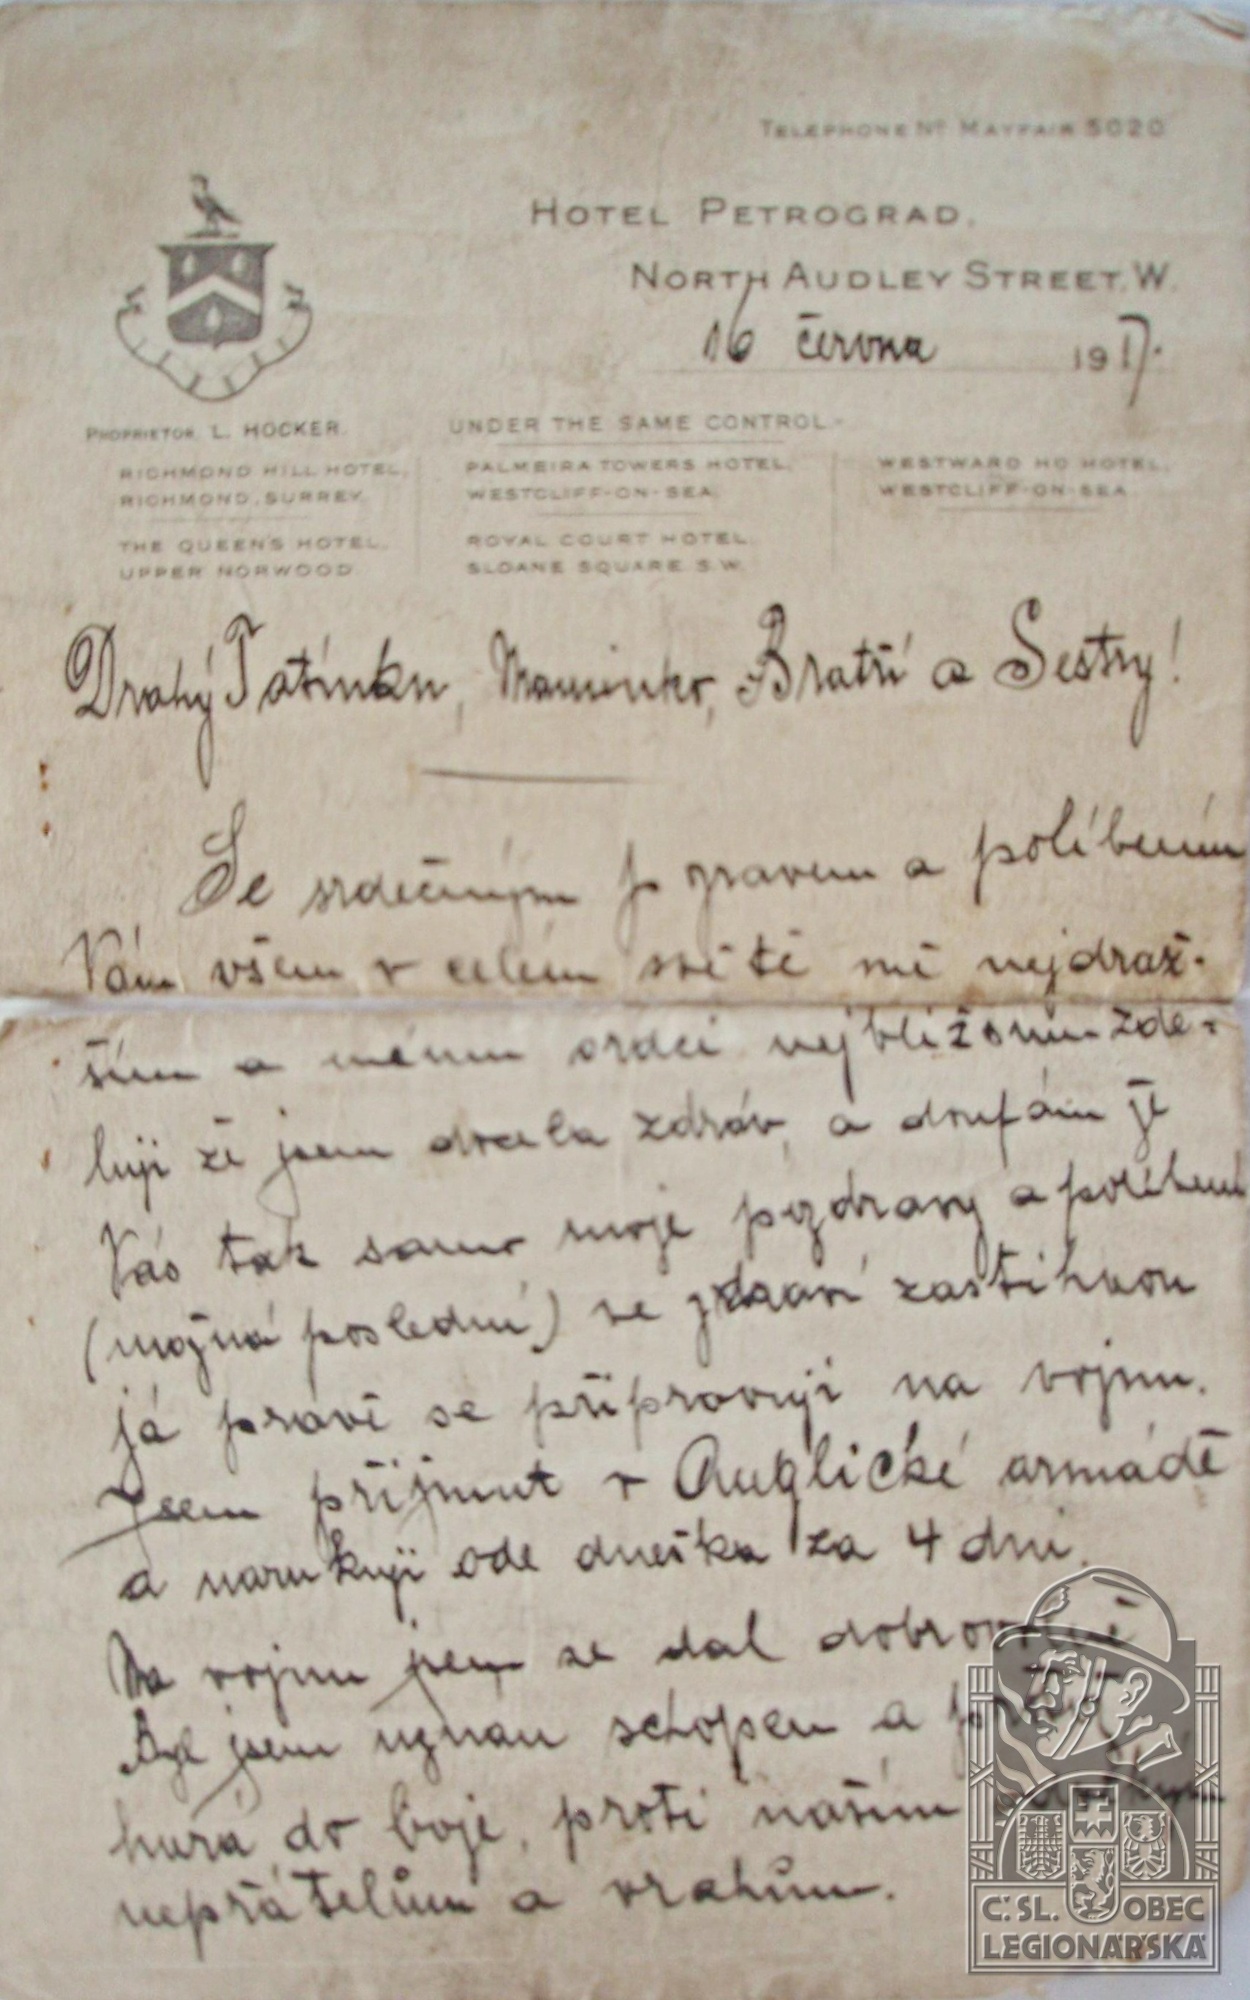 TELEPHONE No MAYFAIR 5020
HOTEL PETROGRAD,
NORTH AUDLEY STREET. W.
16 června 1917.
PROPRIETOR. L. HOCKER.
UNDER THE SAME CONTROL-
RICHMOND HILL HOTEL,
RICHMOND, SURREY.
THE QUEEN'S HOTEL,
UPPER NORWOOD.
PALMEIRA TOWERS HOTEL,
WESTCLIFF-ON-SEA.
ROYAL COURT HOTEL,
SLOANE SQUARE. S.W.
WESTWARD HO HOTEL,
WESTCLIFF-ON-SEA.
Drahý Tatínku, Maminko, Bratří a Sestry!
Se srdečným pozravem a políbením
Vám všem v celém světě mě nejdraž-
ším a mému srdci nejbližšnim zde-
luji že jsem docela zdráv, a doufám že
Vás tak samo moje pozdravy a políbení
(možná poslední) ve zdraví zastihnou
já právě se připravuji na vojnu.
Jsem přijmut v Anglické armádě
a narukuji ode dneška za 4 dni.
Na vojnu jsem se dal dobrovolně
Byl jsem uznán schopen a
hurá do boje, proti našim
nepřátelům a vrahům.
Č. SL. OBEC
LEGIONÁŘSKÁ